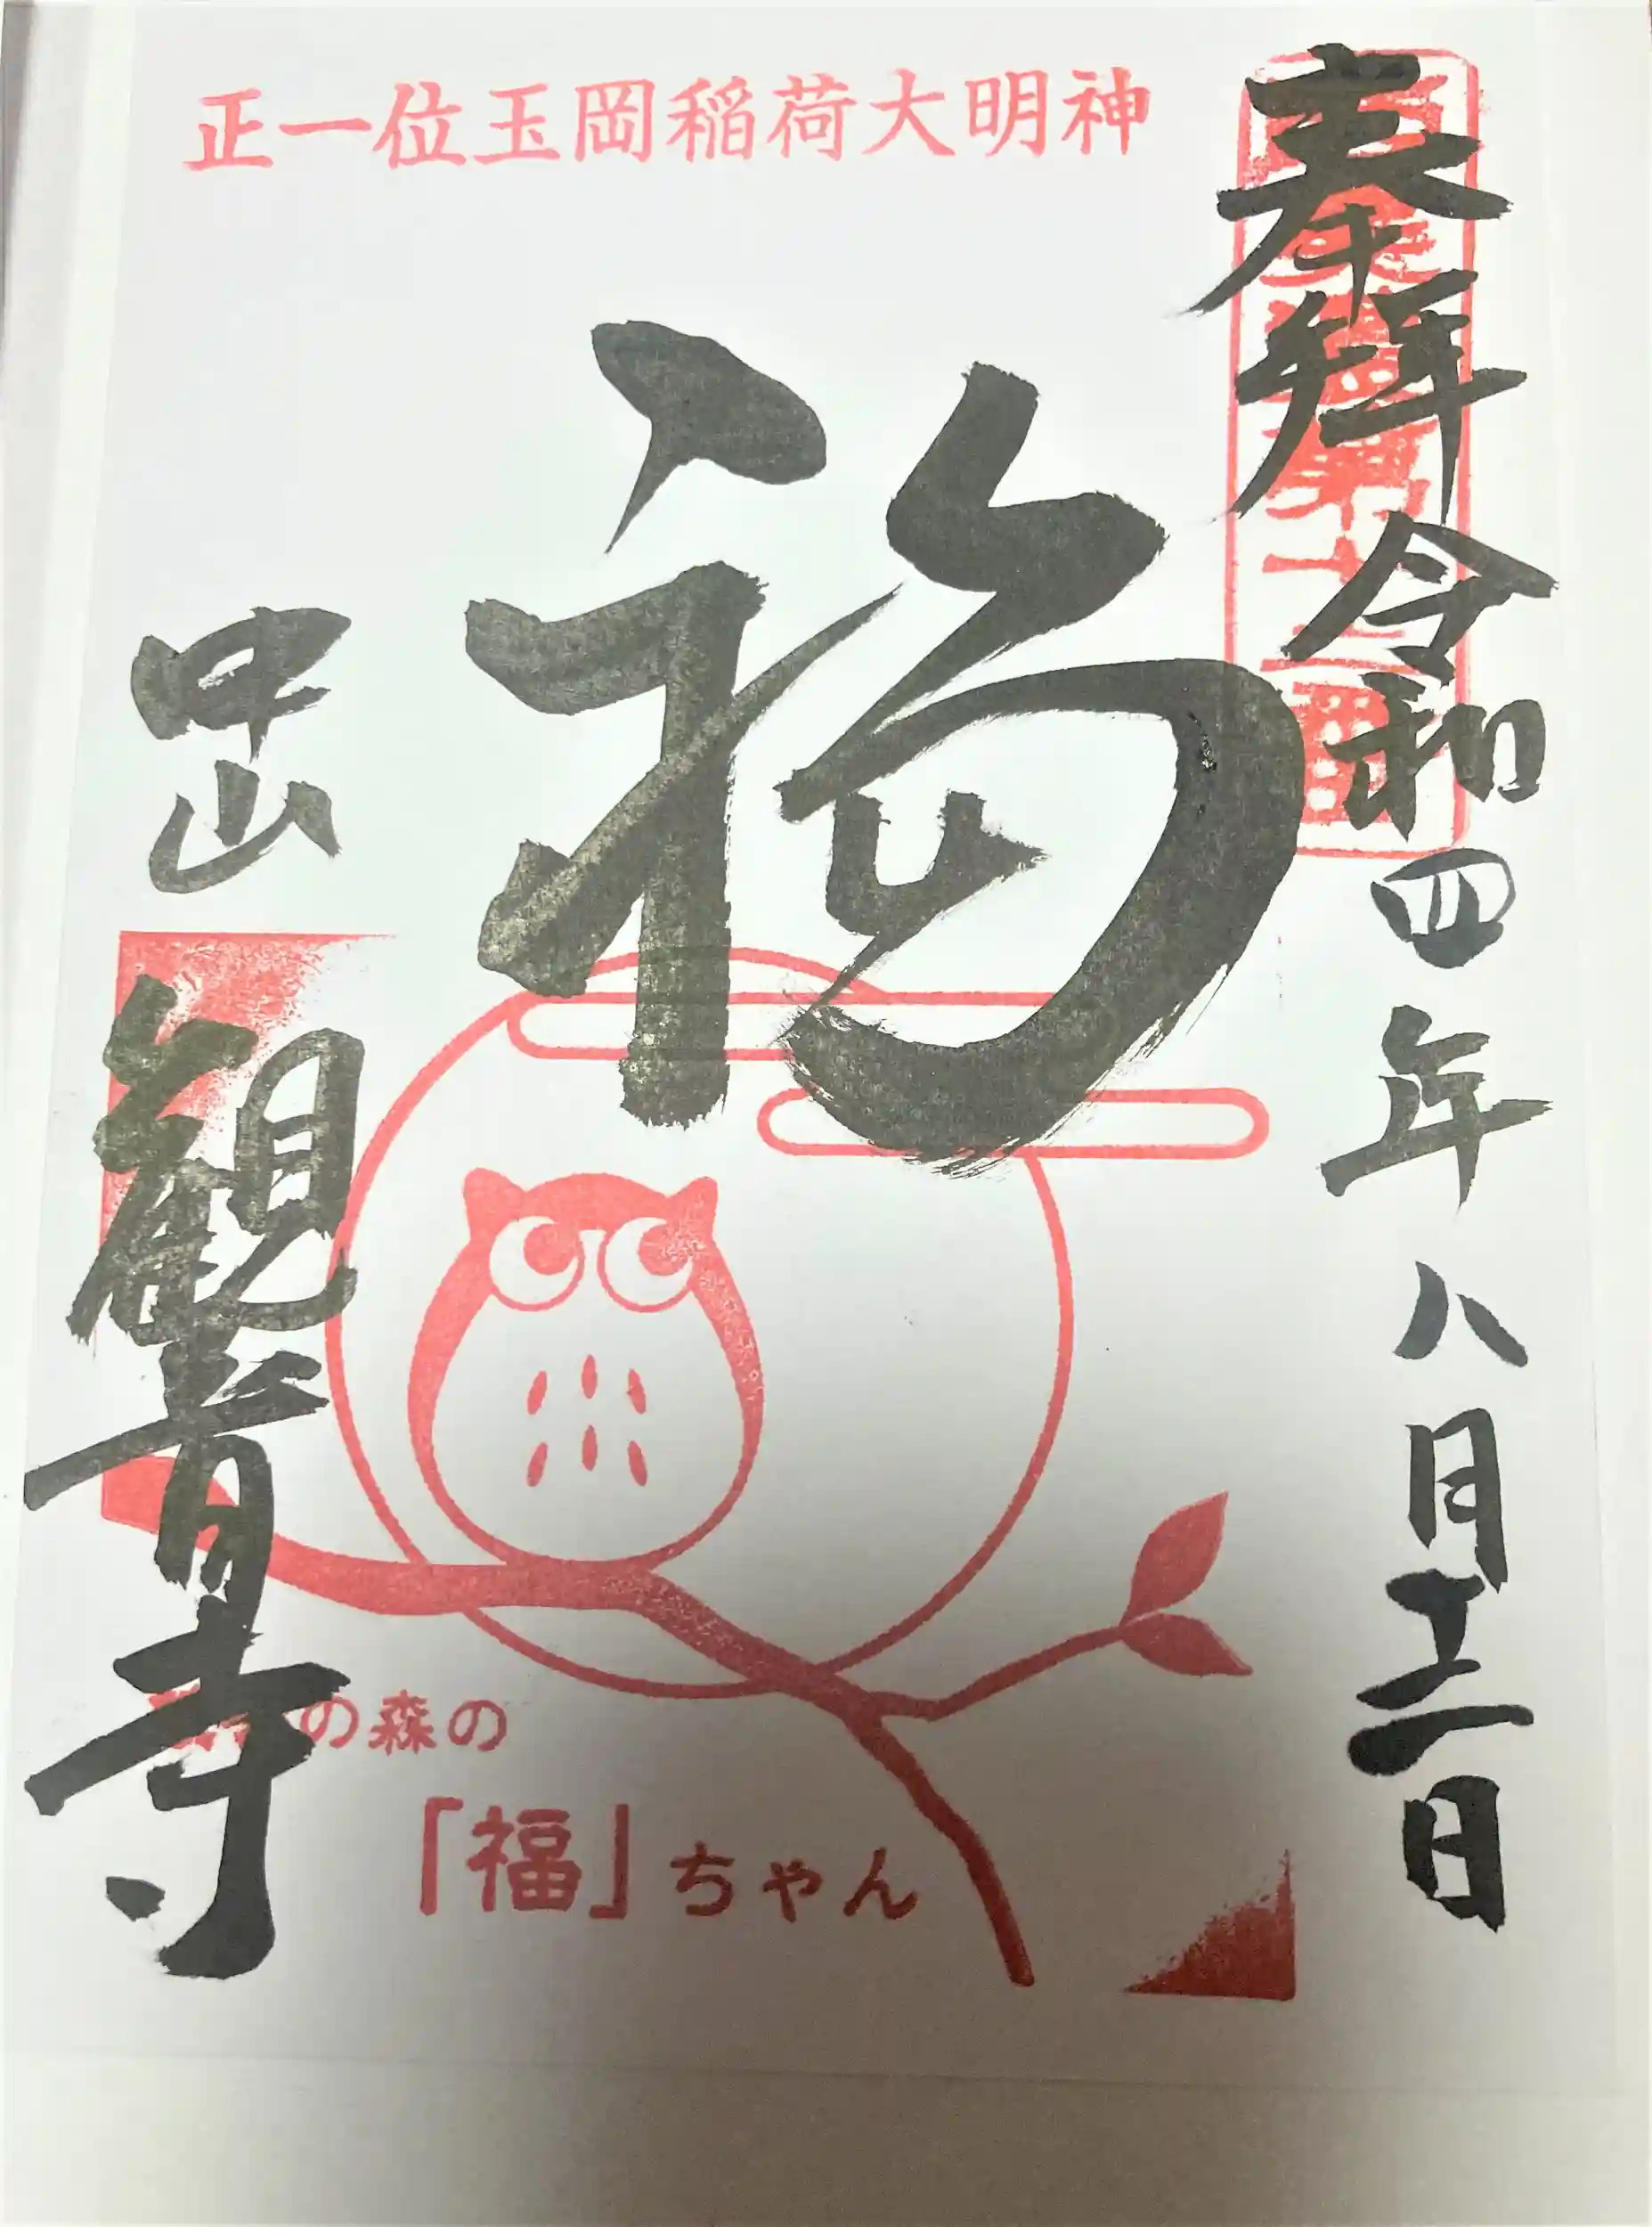 正一位玉岡稲荷大明神
奉拜
令和四年八月十二日
福
中山
観音寺
の森の
「福」ちゃん